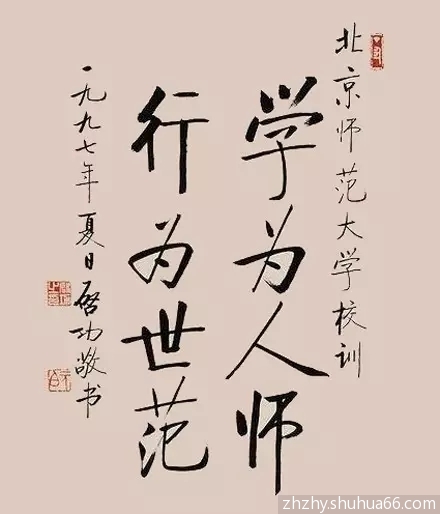 北京师范大学校训
学为人师
行为世范
一九九七年夏日启功敬书
zhzhy.shuhua66.com